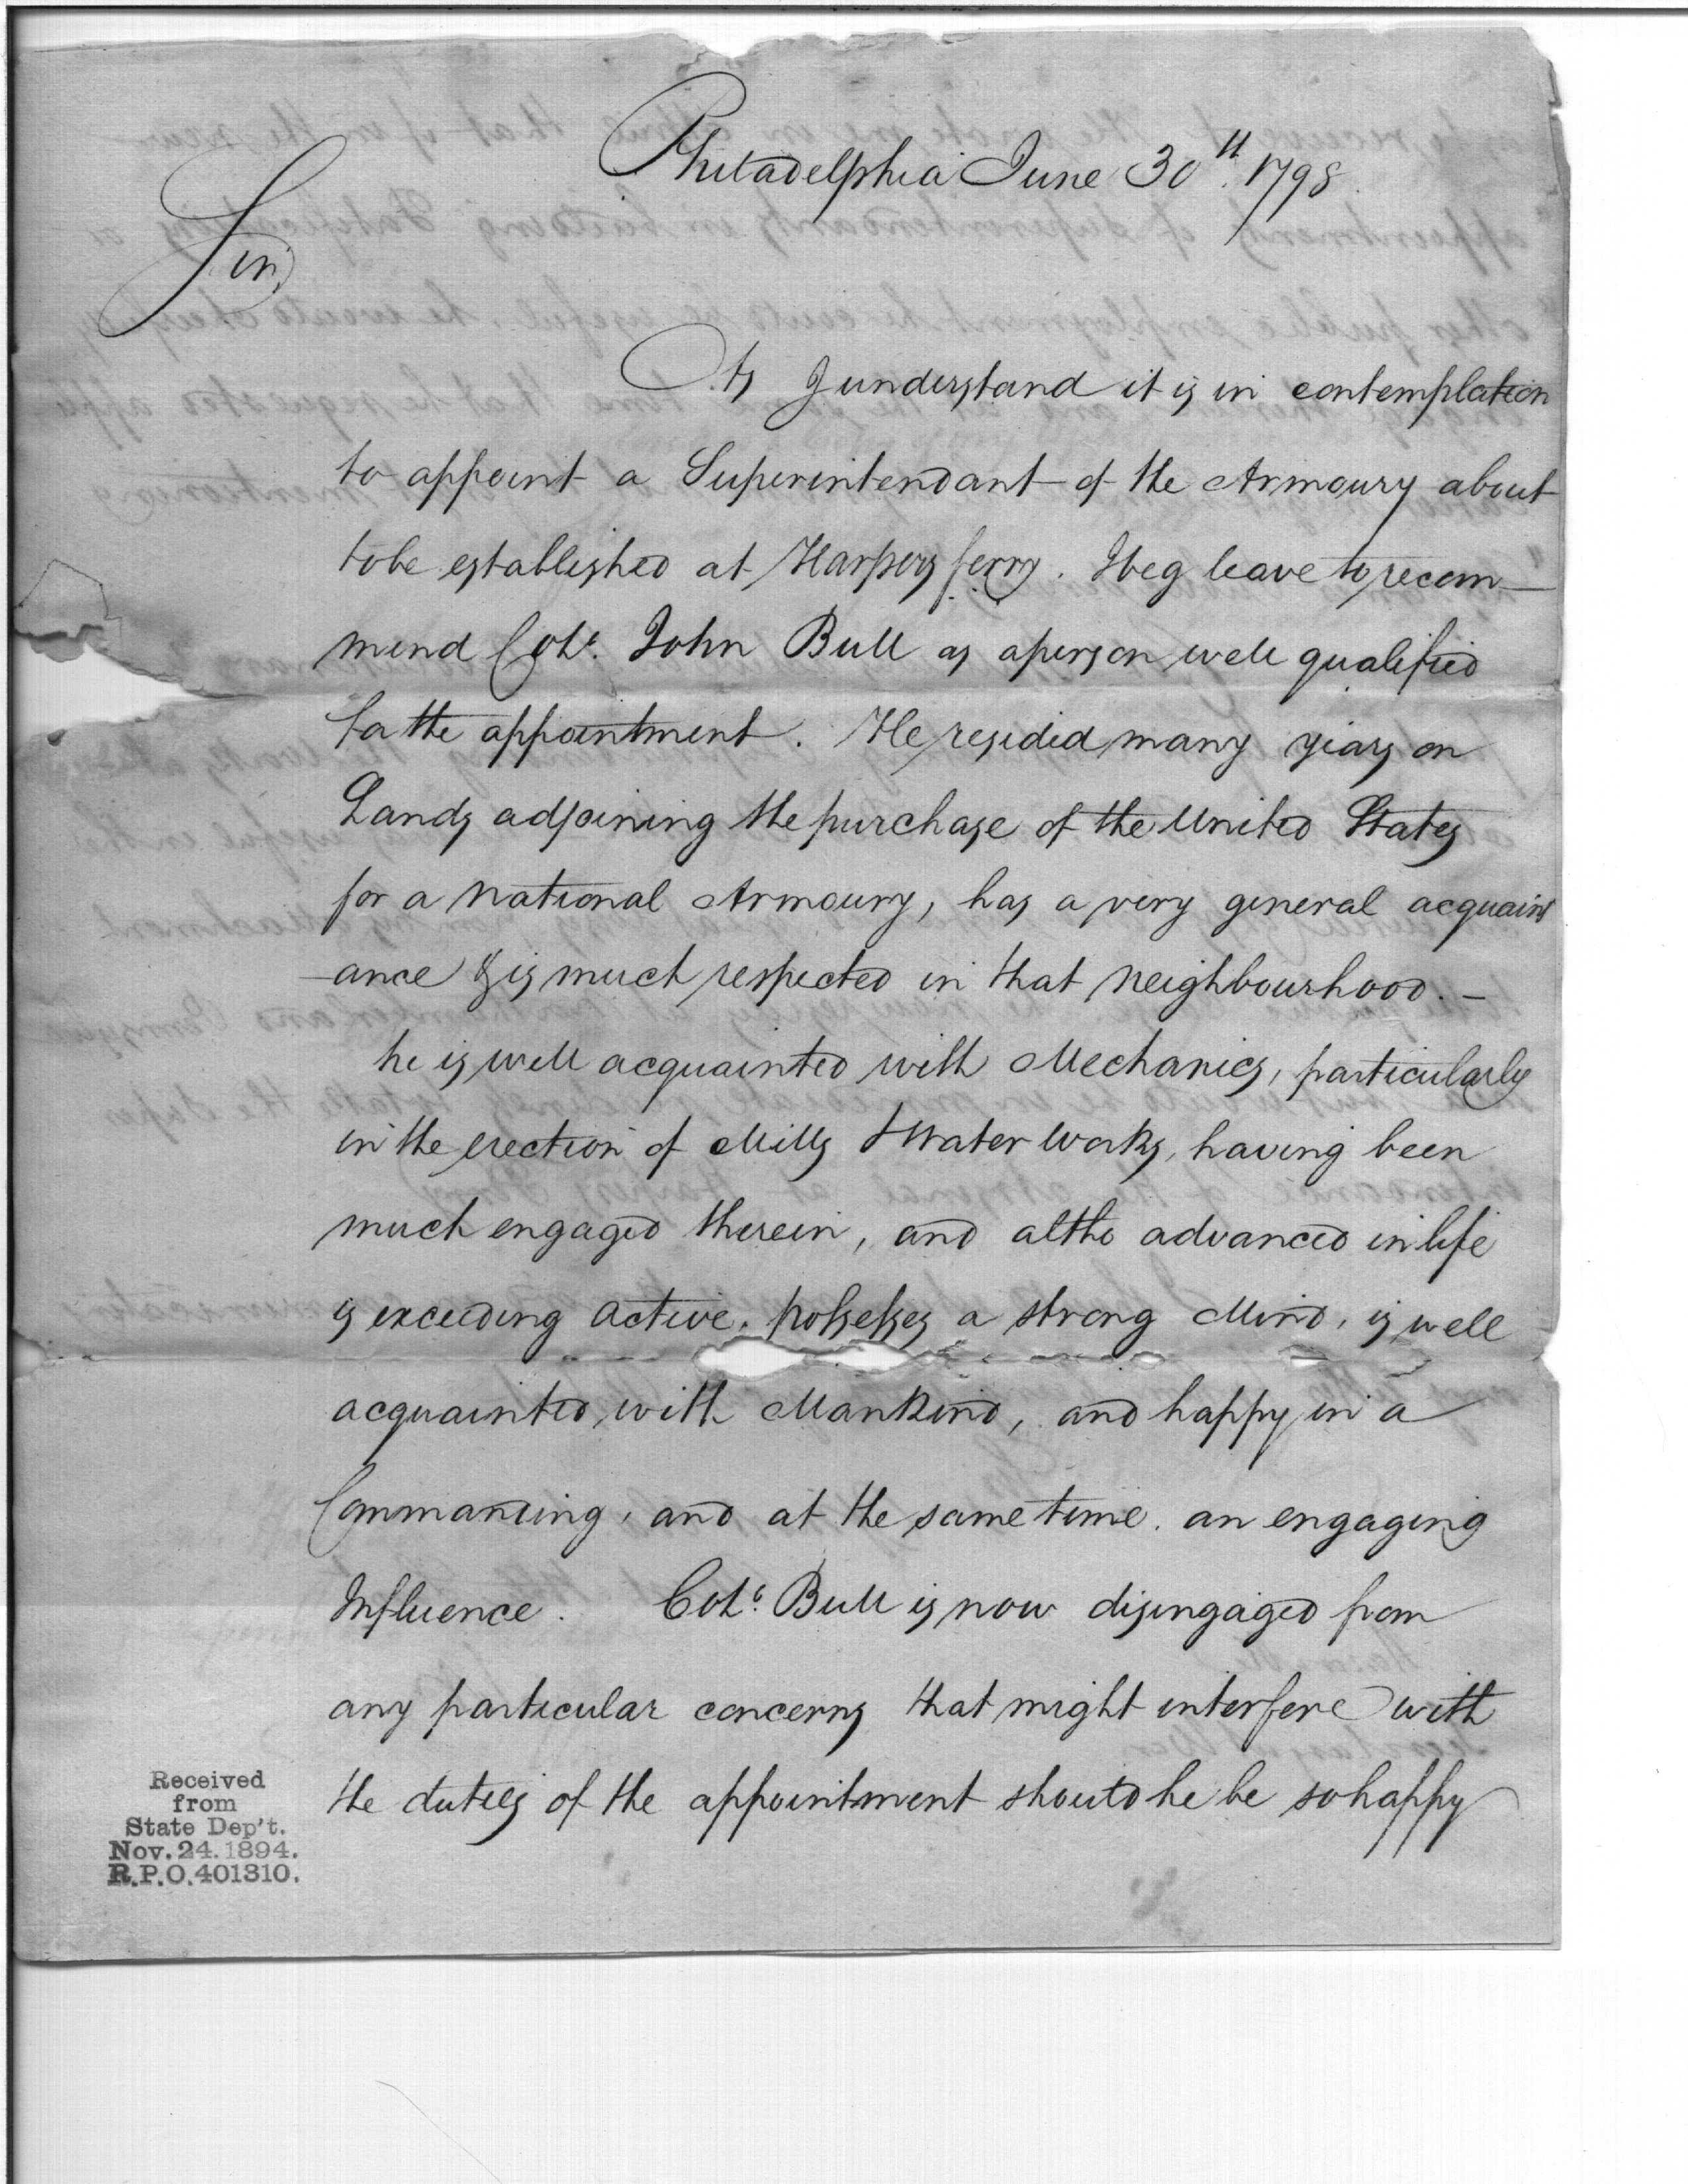 Philadelphia June 30th. 1798.
Sir,
As I understand it is in contemplation
to appoint a Superintendant of the Armoury about
to be established at Harpers ferry. I beg leave to recom-
mend Colo. John Bull as a person well qualified
for the appointment. He resided many years on
Lands adjoining the purchase of the United States
for a National Armoury, has a very general acquaint
-ance & is much respected in that Neighbourhood. -
he is well acquainted with Mechanics, particularly
in the erection of Mills & Water Works, having been
much engaged therein, and altho advanced in life
is exceeding active, possesses a strong Mind, is well
acquainted with Mankind, and happy in a
Commanding, and at the same time, an engaging
Influence. Colo. Bull is now disengaged from
any particular concerns that might interfere with
the duties of the appointment should he be so happy
Received
from
State Dep't.
Nov. 24. 1894.
R.P.O. 401310.